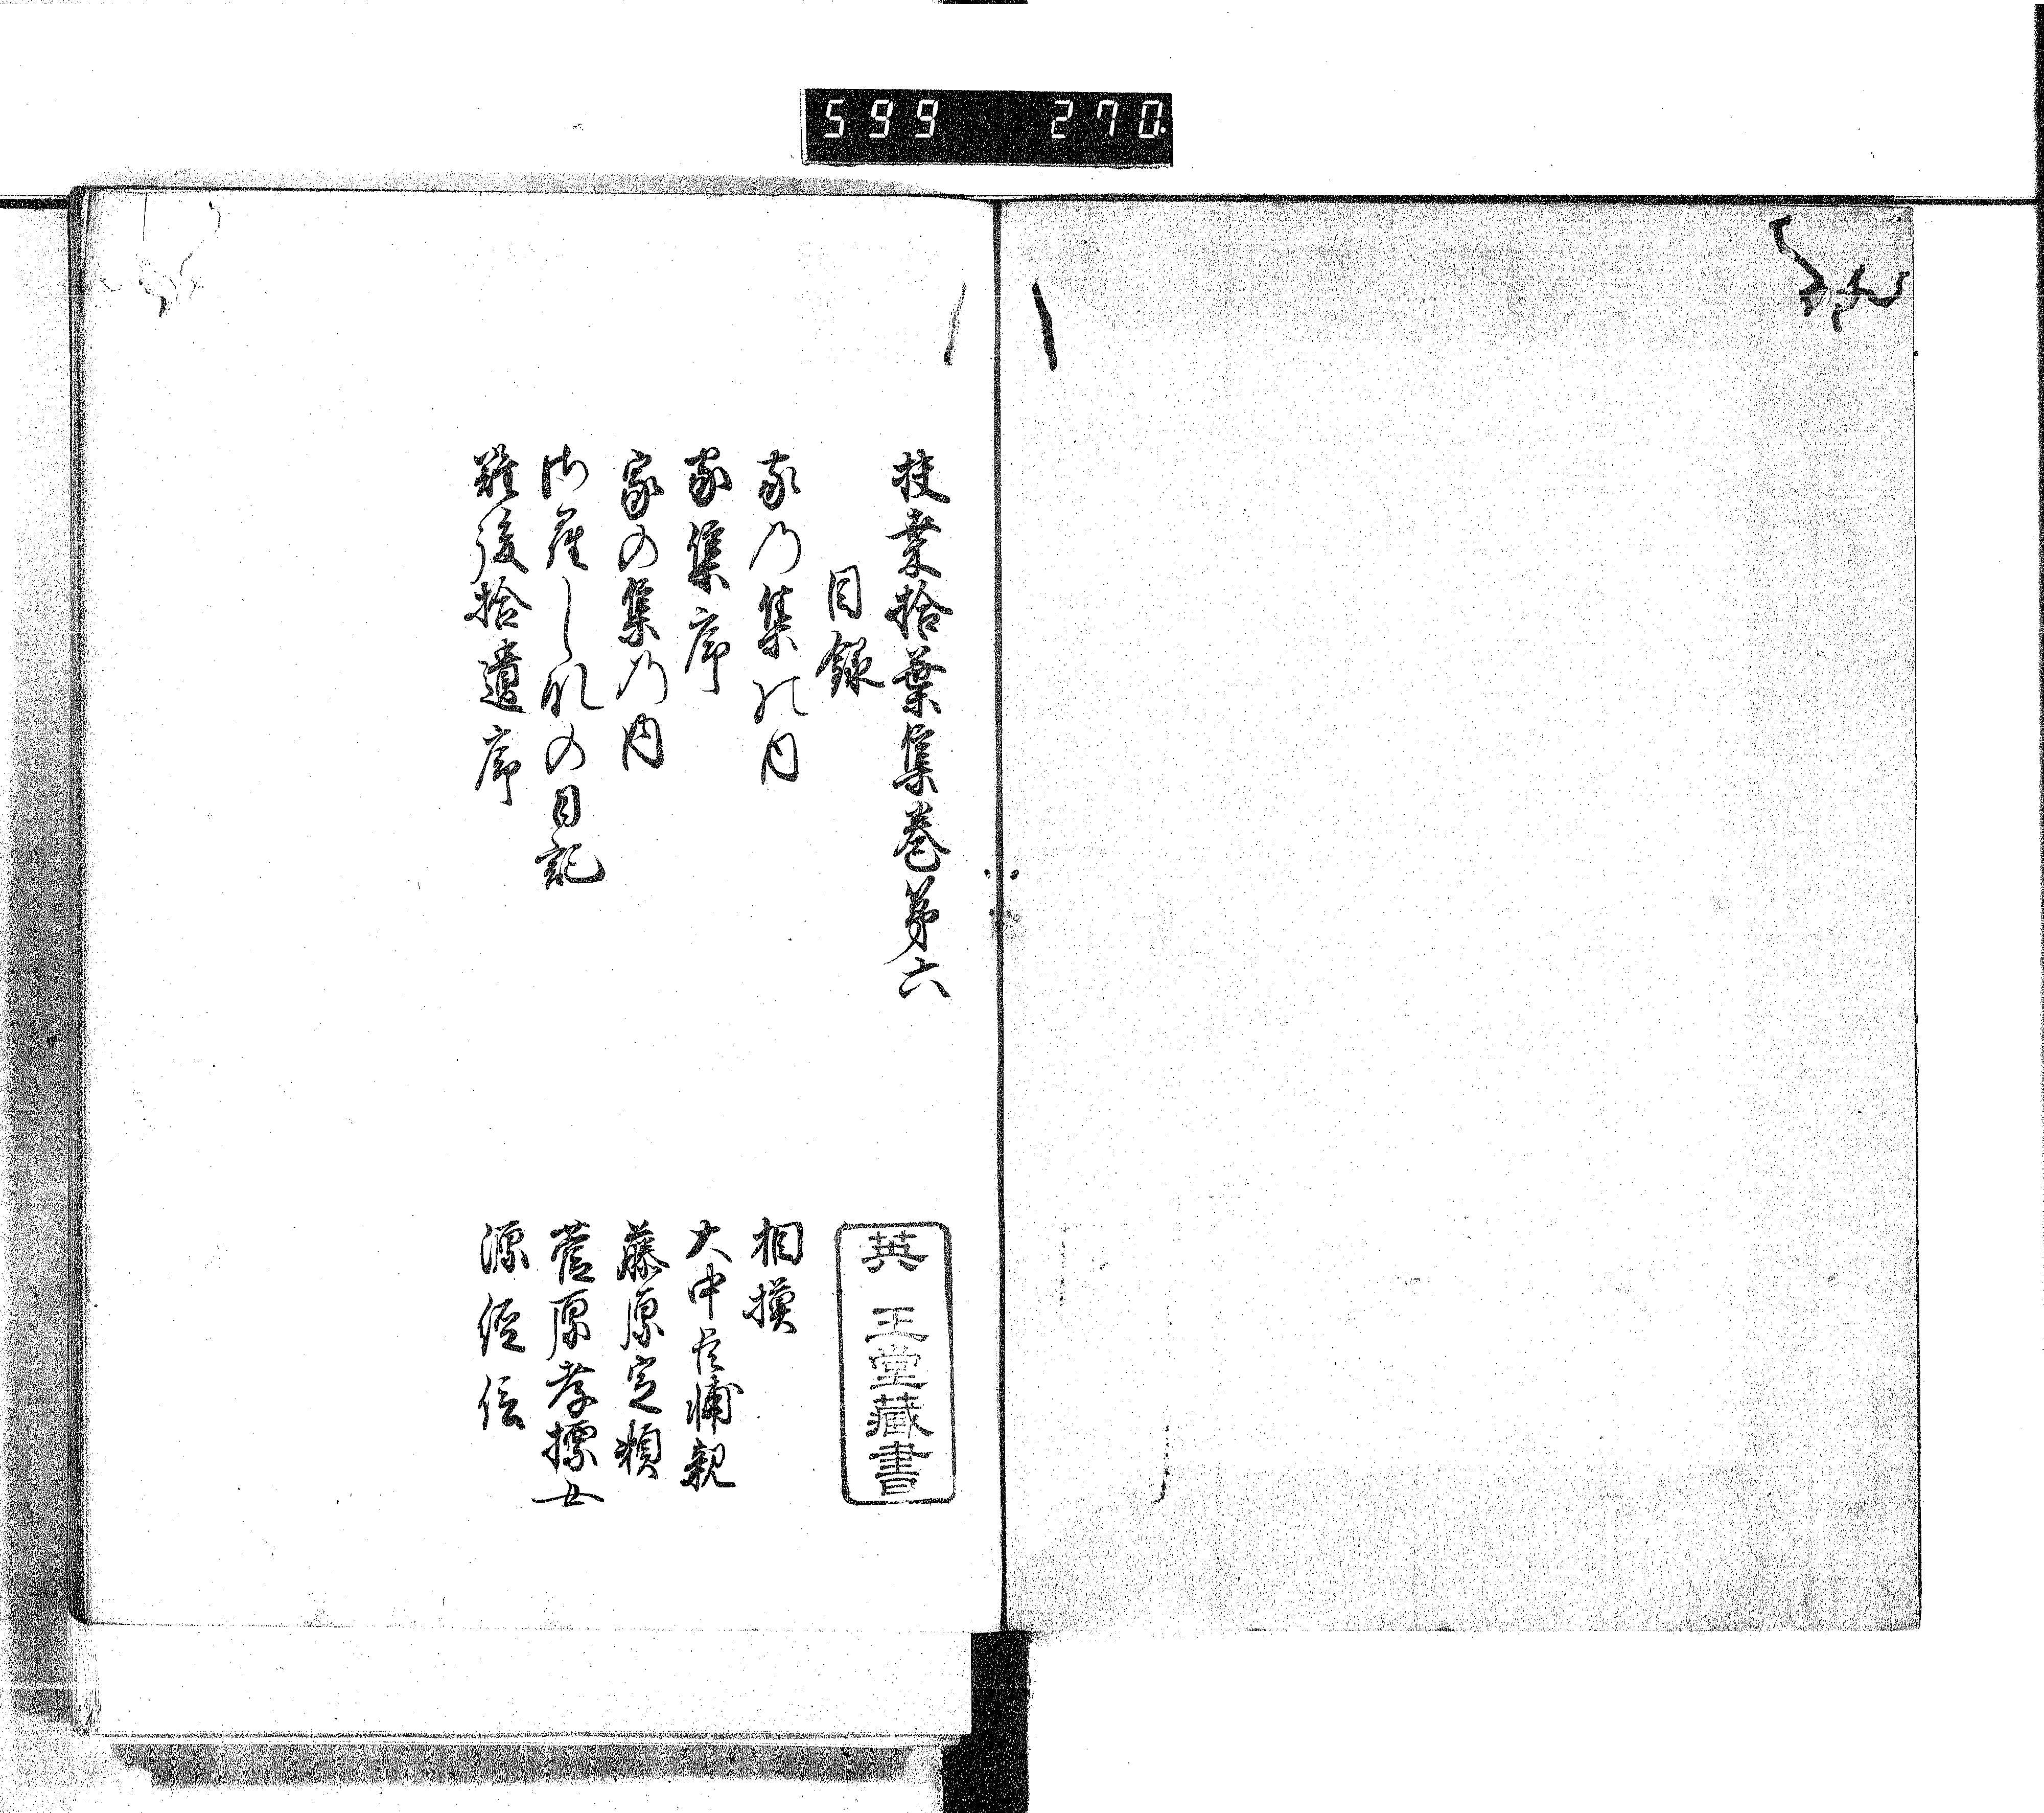 599 270.
扶桑拾葉集巻第六
目録
家乃集の内 相摸
家集序 大中臣輔親
家の集乃内 藤原定頼
さらしなの日記 菅原孝標女
難後拾遺序 源經信
英 王堂藏書